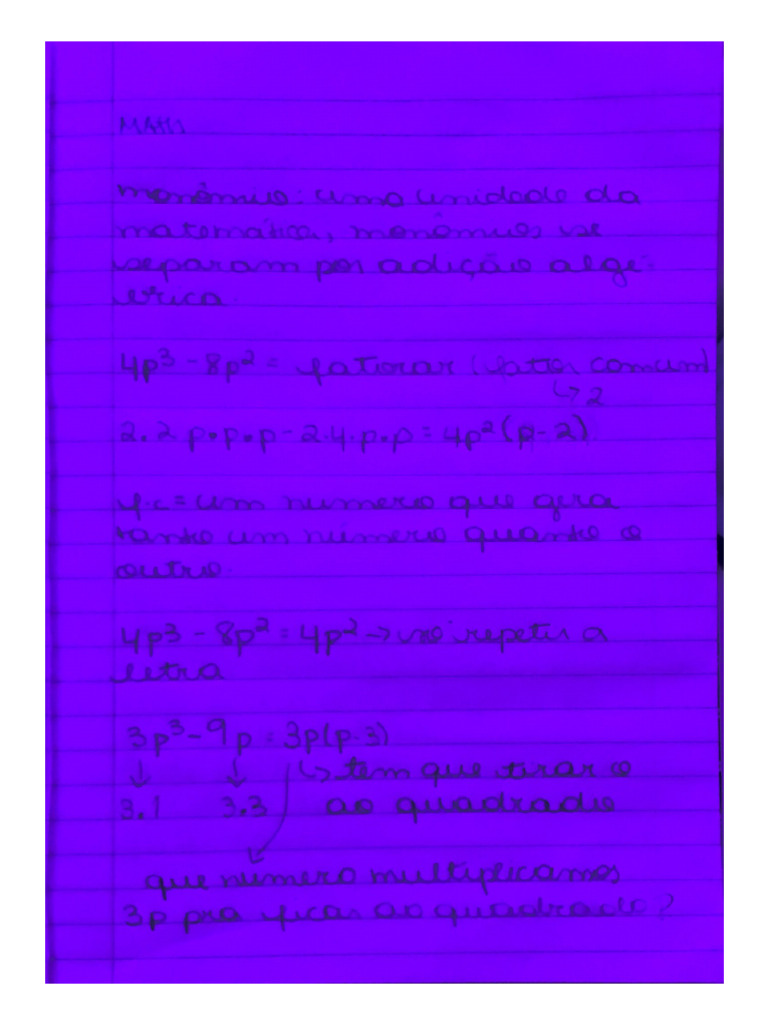 MATH
monômio: uma unidade da
matemática, monômios se
separam por adição algé-
brica.
4p³ - 8p² = fatorar (fator comum)
↳ 2
2.2.p.p.p - 2.4.p.p = 4p²(p-2)
f.c = um numero que gera
tanto um número quanto o
outro.
4p³ - 8p² = 4p² → só repetir a
letra
3p³ - 9p = 3p(p-3)
↓ ↓ ↳ tem que tirar o
3.1 3.3 ao quadrado
que número multiplicamos
3p pra ficar ao quadrado?